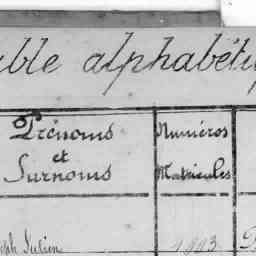 able alphabétiq
Prénoms
et
Surnoms
Numéros
Matricules
eph Julien
1003